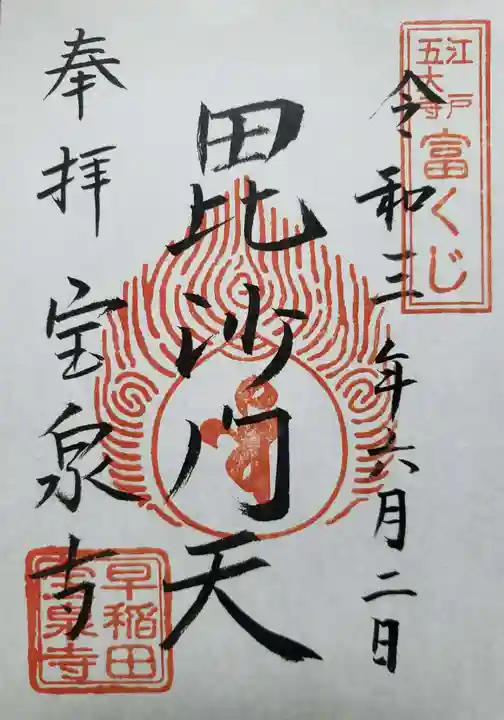 江戸
五大寺
富くじ
令和三年六月二日
毘沙門天
奉拝
宝泉寺
早稲田
宝泉寺